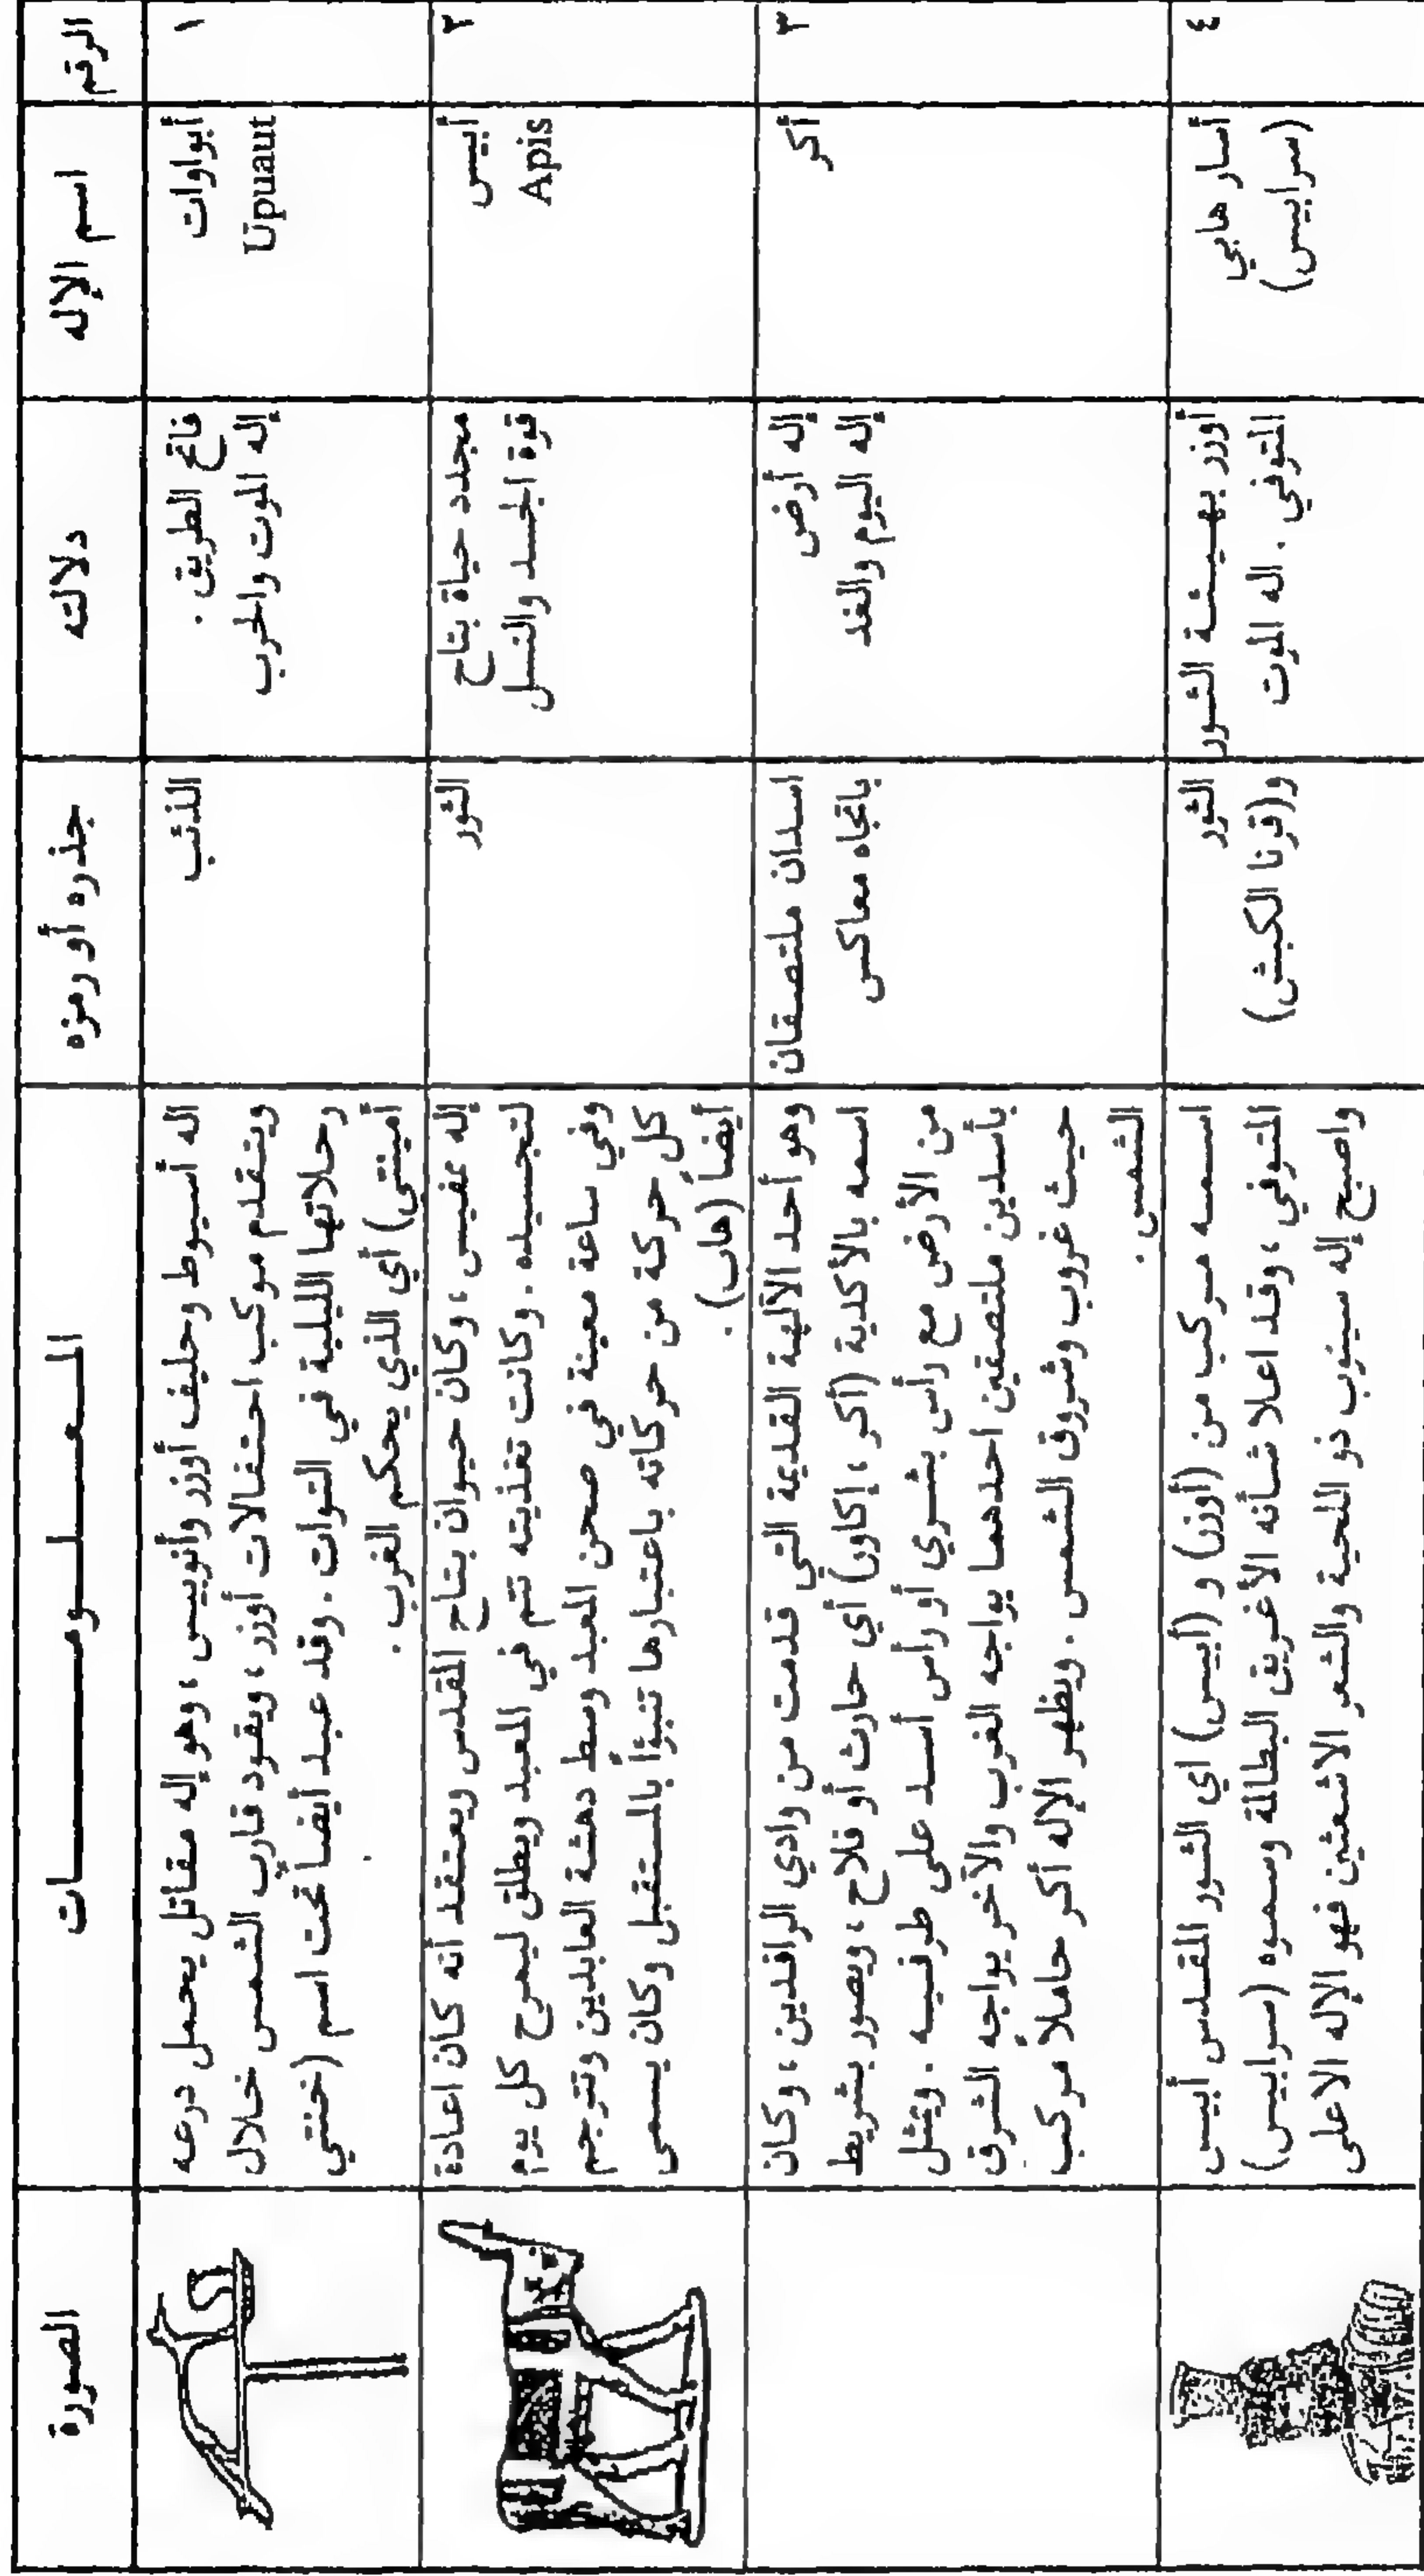 الرقم
اسم الإله
دلالته
جذره أو رمزه
المعلومات
الصورة
١
أبواوات
Upuaut
فاتح الطريق .
إله الموت والحرب
الذئب
اله أسيوط وحليف أوزر وأنوبيس ، وهو إله مقاتل يحمل درعه
ويتقدم موكب احتفالات أوزر ، ويقود قارب الشمس خلال
رحلاتها الليلية في التوات . وقد عبد أيضاً تحت اسم (خنتي
أمينتي) أي الذي يحكم الغرب .
٢
أبيس
Apis
مجدد حياة بتاح
قوة الجسد والنسل
الثور
إله ممفيس ، وكان حيوان بتاح المقدس ويعتقد أنه كان اعادة
لتجسيده . وكانت تغذيته تتم في المعبد ويطلق ليمرح كل يوم
وفي ساعة معينة في صحن المعبد وسط دهشة العابدين وتترجم
كل حركة من حركاته باعتبارها تنبؤاً بالمستقبل وكان يسمى
أيضاً (هاب) .
٣
أكر
إله أرض
إله اليوم والغد
اسدان ملتصقان
باتجاه معاكس
وهو أحد الآلهة القديمة التي قدمت من وادي الرافدين ، وكان
اسمه بالأكدية (أكر ، إكاور) أي حارث أو فلاح ، ويصور بشريط
من الأرض مع رأس بشري أو رأس أسد على طرفيه . ويمثل
بأسدين ملتصقين احدهما يواجه الغرب والآخر يواجه الشرق
حيث غروب وشروق الشمس . ويظهر الإله أكر حاملاً مركب
الشمس .
٤
أسار هابي
(سرابيس)
أوزر بهيئة الثور
المتوفي . اله الموت
الثور
و(قرنا الكبش)
اسمه مركب من (أوزر) و (أبيس) اي الثور المقدس أبيس
المتوفي ، وقد اعلا شأنه الأغريق البطالمة وسمره (سرابيس)
واصبح إله سينوب ذو اللحية والشعر الاشعثين فهو الإله الاعلى